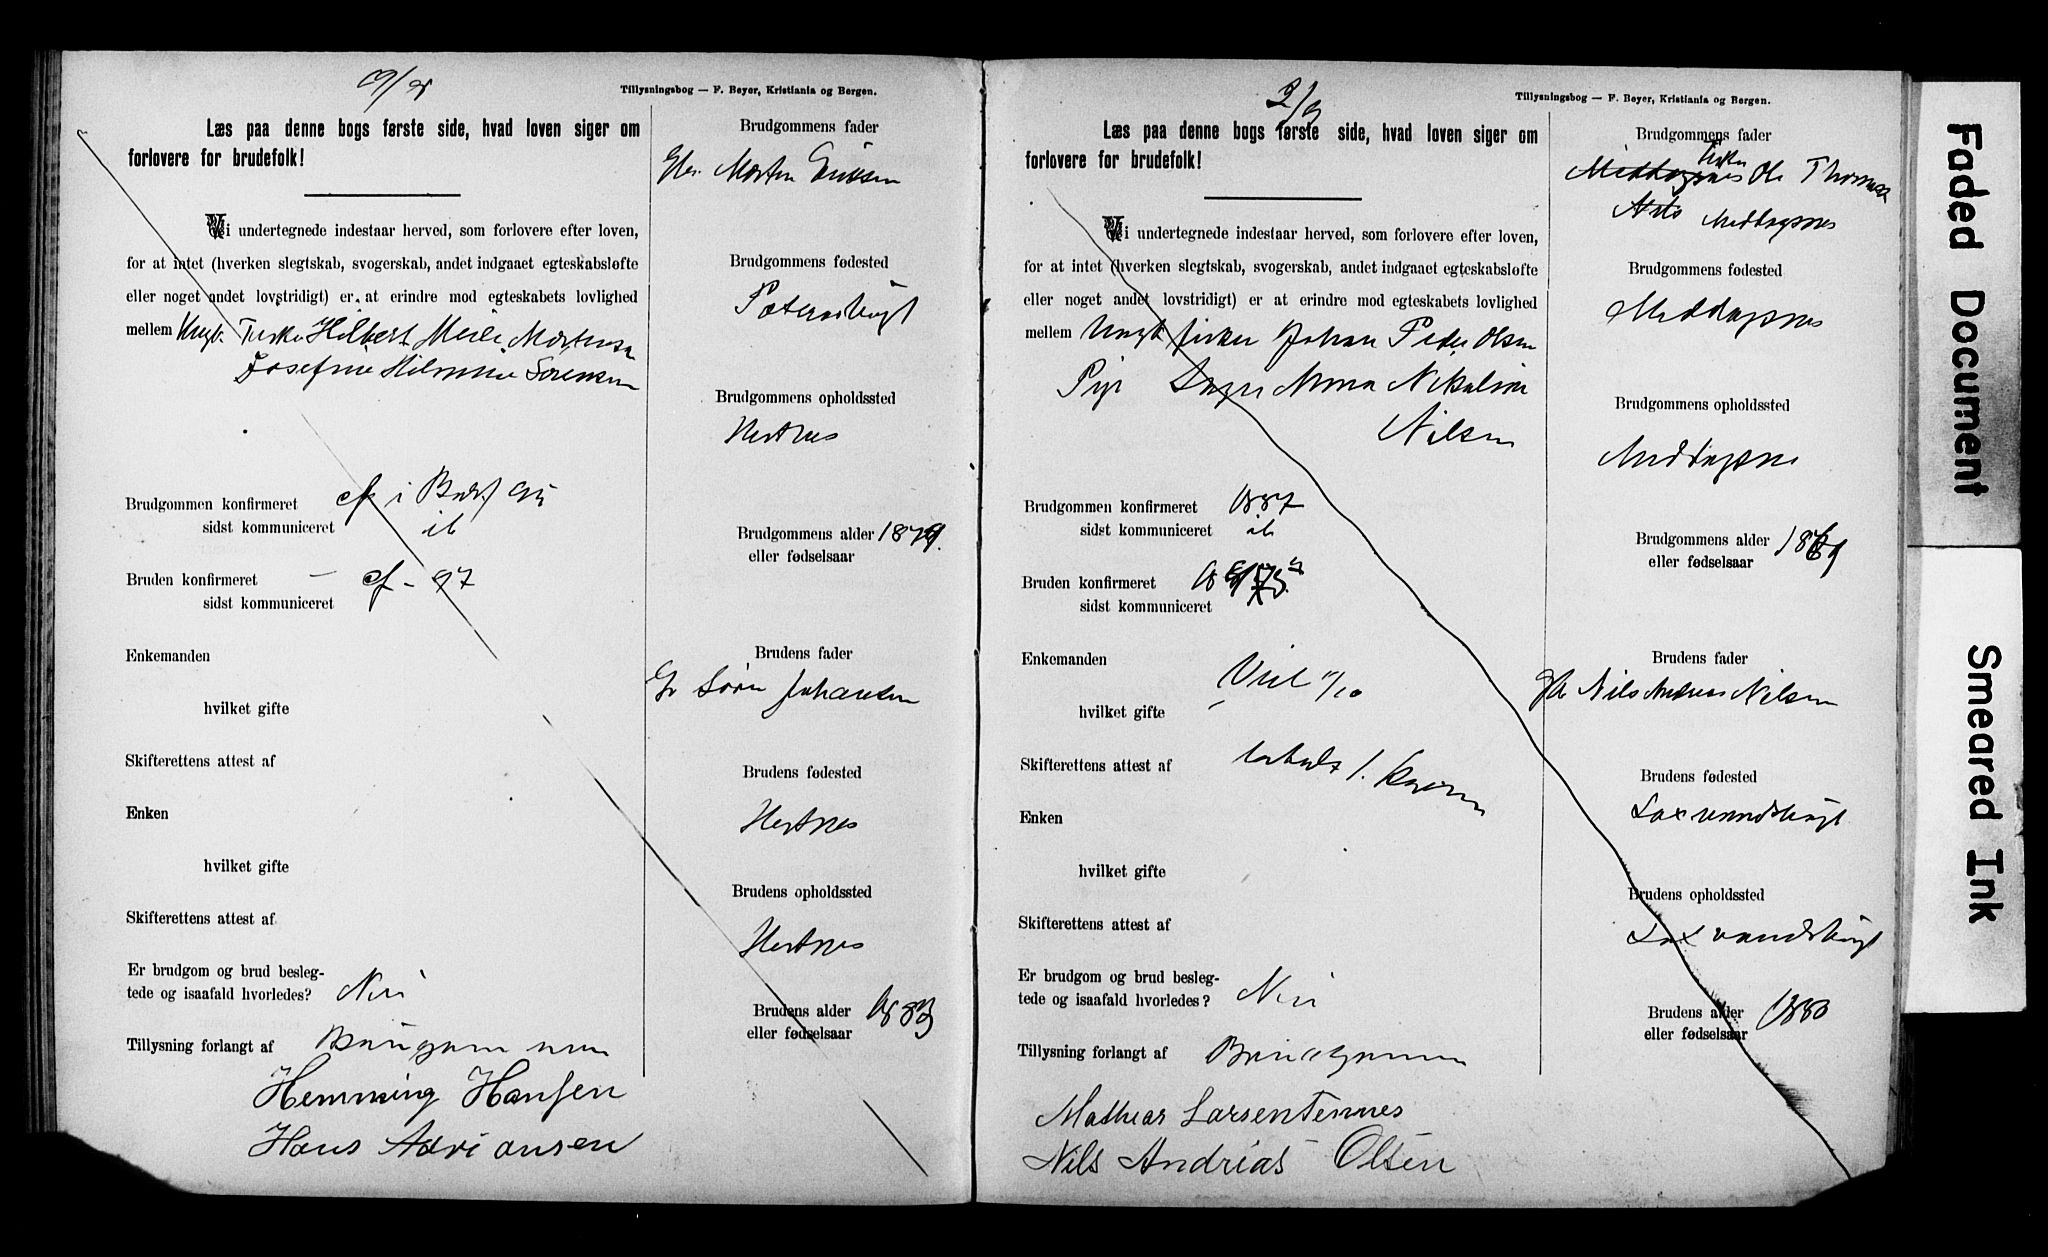 Tillysningsbog — F. Beyer, Kristiania og Bergen.
Læs paa denne bogs første side, hvad loven siger om
forlovere for brudefolk!
Vi undertegnede indestaar herved, som forlovere efter loven,
for at intet (hverken slegtskab, svogerskab, andet indgaaet egteskabsløfte
eller noget andet lovstridigt) er at erindre mod egteskabets lovlighed
mellem Ungk. Fisker Hilbert Meile Mortensen
Josefine Hilmine Sørensen
Brudgommen konfirmeret cf i
sidst kommuniceret ib
Bruden konfirmeret — cf - 97
sidst kommuniceret
Enkemanden
hvilket gifte
Skifterettens attest af
Enken
hvilket gifte
Skifterettens attest af
Er brudgom og brud besleg-
tede og isaafald hvorledes? Nei
Tillysning forlangt af Brudgommen
Hemming Hansen
Hans Adriansen
Brudgommens fader
Morten
Brudgommens fødested
Brudgommens opholdssted
Hestnes
Brudgommens alder 1879.
eller fødselsaar
Brudens fader
Søren Johansen
Brudens fødested
Hestnes
Brudens opholdssted
Hestnes
Brudens alder 1883
eller fødselsaar
2/9
Tillysningsbog — F. Beyer, Kristiania og Bergen.
Læs paa denne bogs første side, hvad loven siger om
forlovere for brudefolk!
Vi undertegnede indestaar herved, som forlovere efter loven,
for at intet (hverken slegtskab, svogerskab, andet indgaaet egteskabsløfte
eller noget andet lovstridigt) er at erindre mod egteskabets lovlighed
mellem Ungk fisker Johan Peder Olsen
Pige Anna Nikoline
Nilsen
Brudgommen konfirmeret 1887
sidst kommuniceret ib
Bruden konfirmeret
sidst kommuniceret
Enkemanden
hvilket gifte
Viel 11/10
Skifterettens attest af
Enken
hvilket gifte
Skifterettens attest af
Er brudgom og brud besleg-
tede og isaafald hvorledes? Nei
Tillysning forlangt af Brudgommen
Mathias Larsen Tennes
Nils Andrias Olsen
Brudgommens fader
Fisker
Meddagsnes Ole Thomas
Nils Meddagsnes
Brudgommens fødested
Meddagsnes
Brudgommens opholdssted
Meddagsnes
Brudgommens alder 1869
eller fødselsaar
Brudens fader
Nils Andreas Nilsen
Brudens fødested
Laxvandsbugt
Brudens opholdssted
Laxvandsbugt
Brudens alder 1880
eller fødselsaar
Faded Document
Smeared Ink